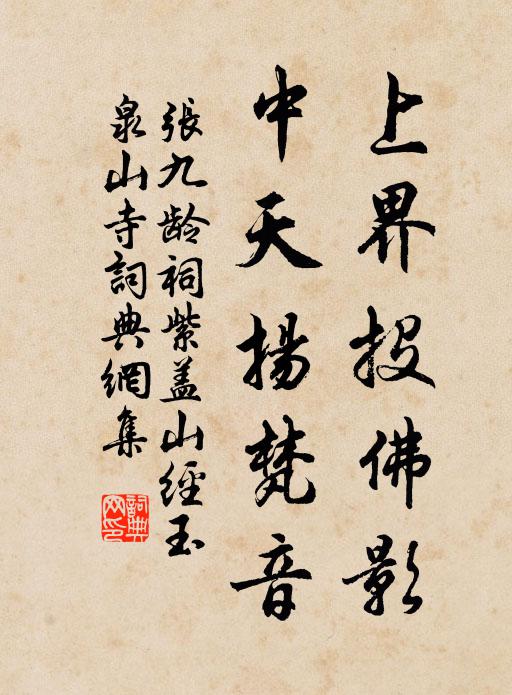 上界投佛影
中天揚梵音
張九齡祠紫蓋山經玉
泉山寺詞典網集
詞典
网印